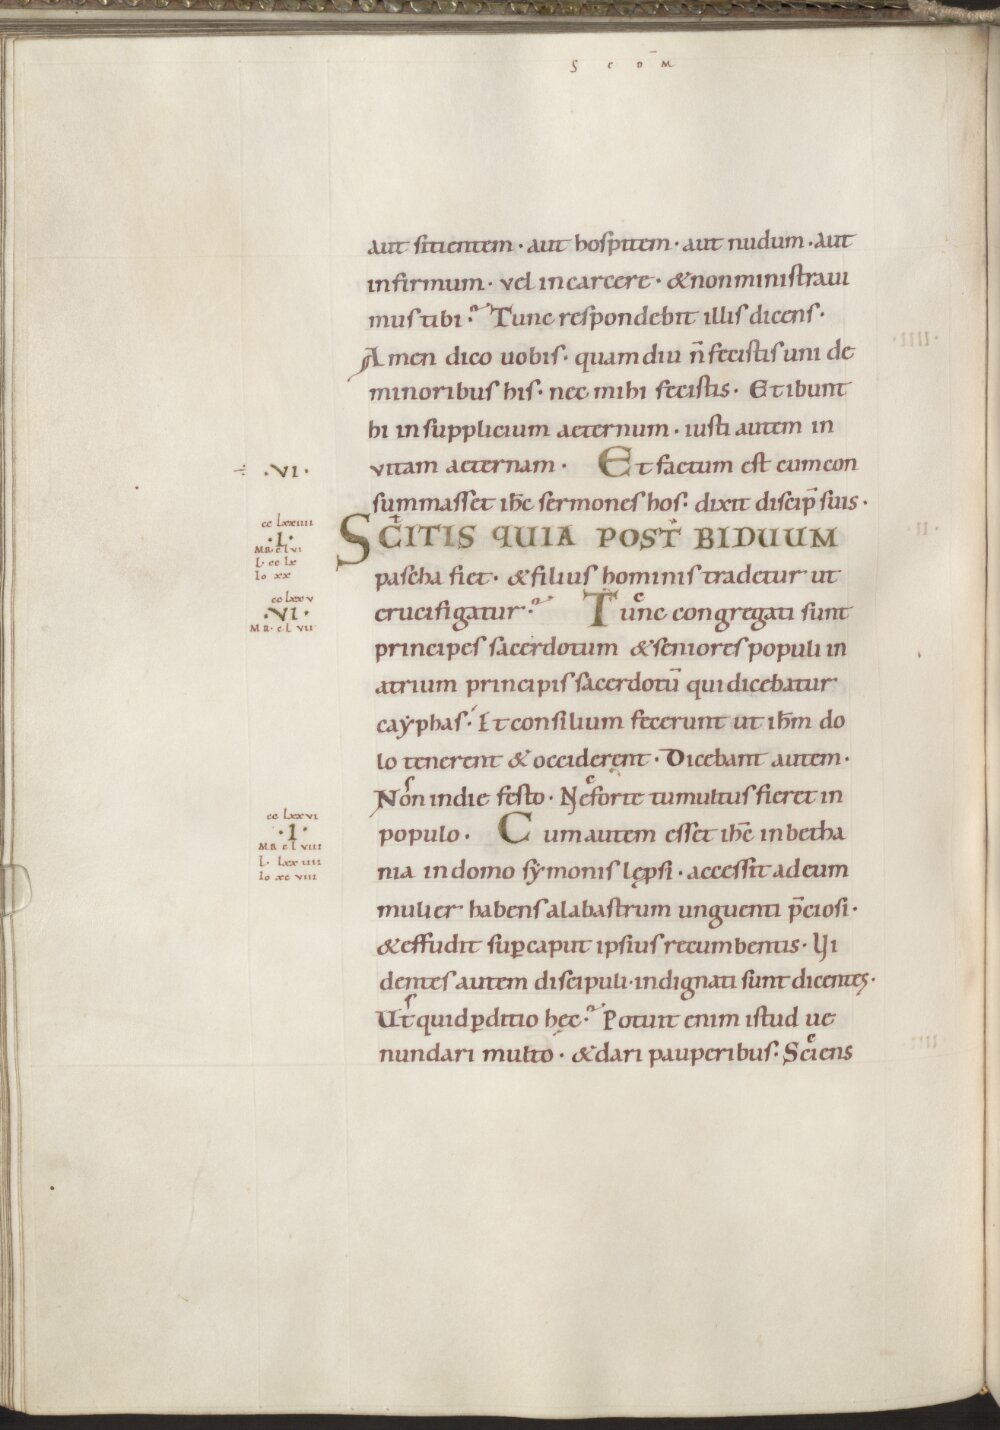 S C D M̄
aut sitientem · aut hospitem · aut nudum · aut
infirmum · vel in carcere · & non ministravi
mus tibi · Tunc respondebit illis dicens ·
Amen dico uobis · quam diu n̄ fecistis uni de
minoribus his · nec mihi fecistis · Et ibunt
hi in supplicium aeternum · iusti autem in
· VI ·
vitam aeternam · Et factum est cum con
summasset ih̄c sermones hos · dixit discip̄ suis ·
cc Lxxiiii
· I ·
MR · c L vi
L · cc Lx
Io xx
SCITIS QUIA POST BIDUUM
pascha fiet · & filius hominis tradetur ut
cc Lxxv
· VI ·
MR · c L vii
crucifigatur · Tunc congregati sunt
principes sacerdotum & seniores populi in
atrium principis sacerdotū qui dicebatur
caẏphas · Et consilium fecerunt ut ih̄m do
lo tenerent & occiderent · Dicebant autem ·
Non in die festo · Ne forte tumultus fieret in
cc Lxxvi
· I ·
MR c L viii
L · Lxxiiii
Io xc viii
populo · Cum autem esset ih̄c in betha
nia in domo sẏmonis lępsi · accessit ad eum
mulier habens alabastrum unguenti p̄ciosi ·
& effudit sup caput ipsius recumbentis · Ui
dentes autem discipuli · indignati sunt dicentes ·
Ut quid pditio hęc · Potuit enim istud ue
nundari multo · & dari pauperibus · Sciens